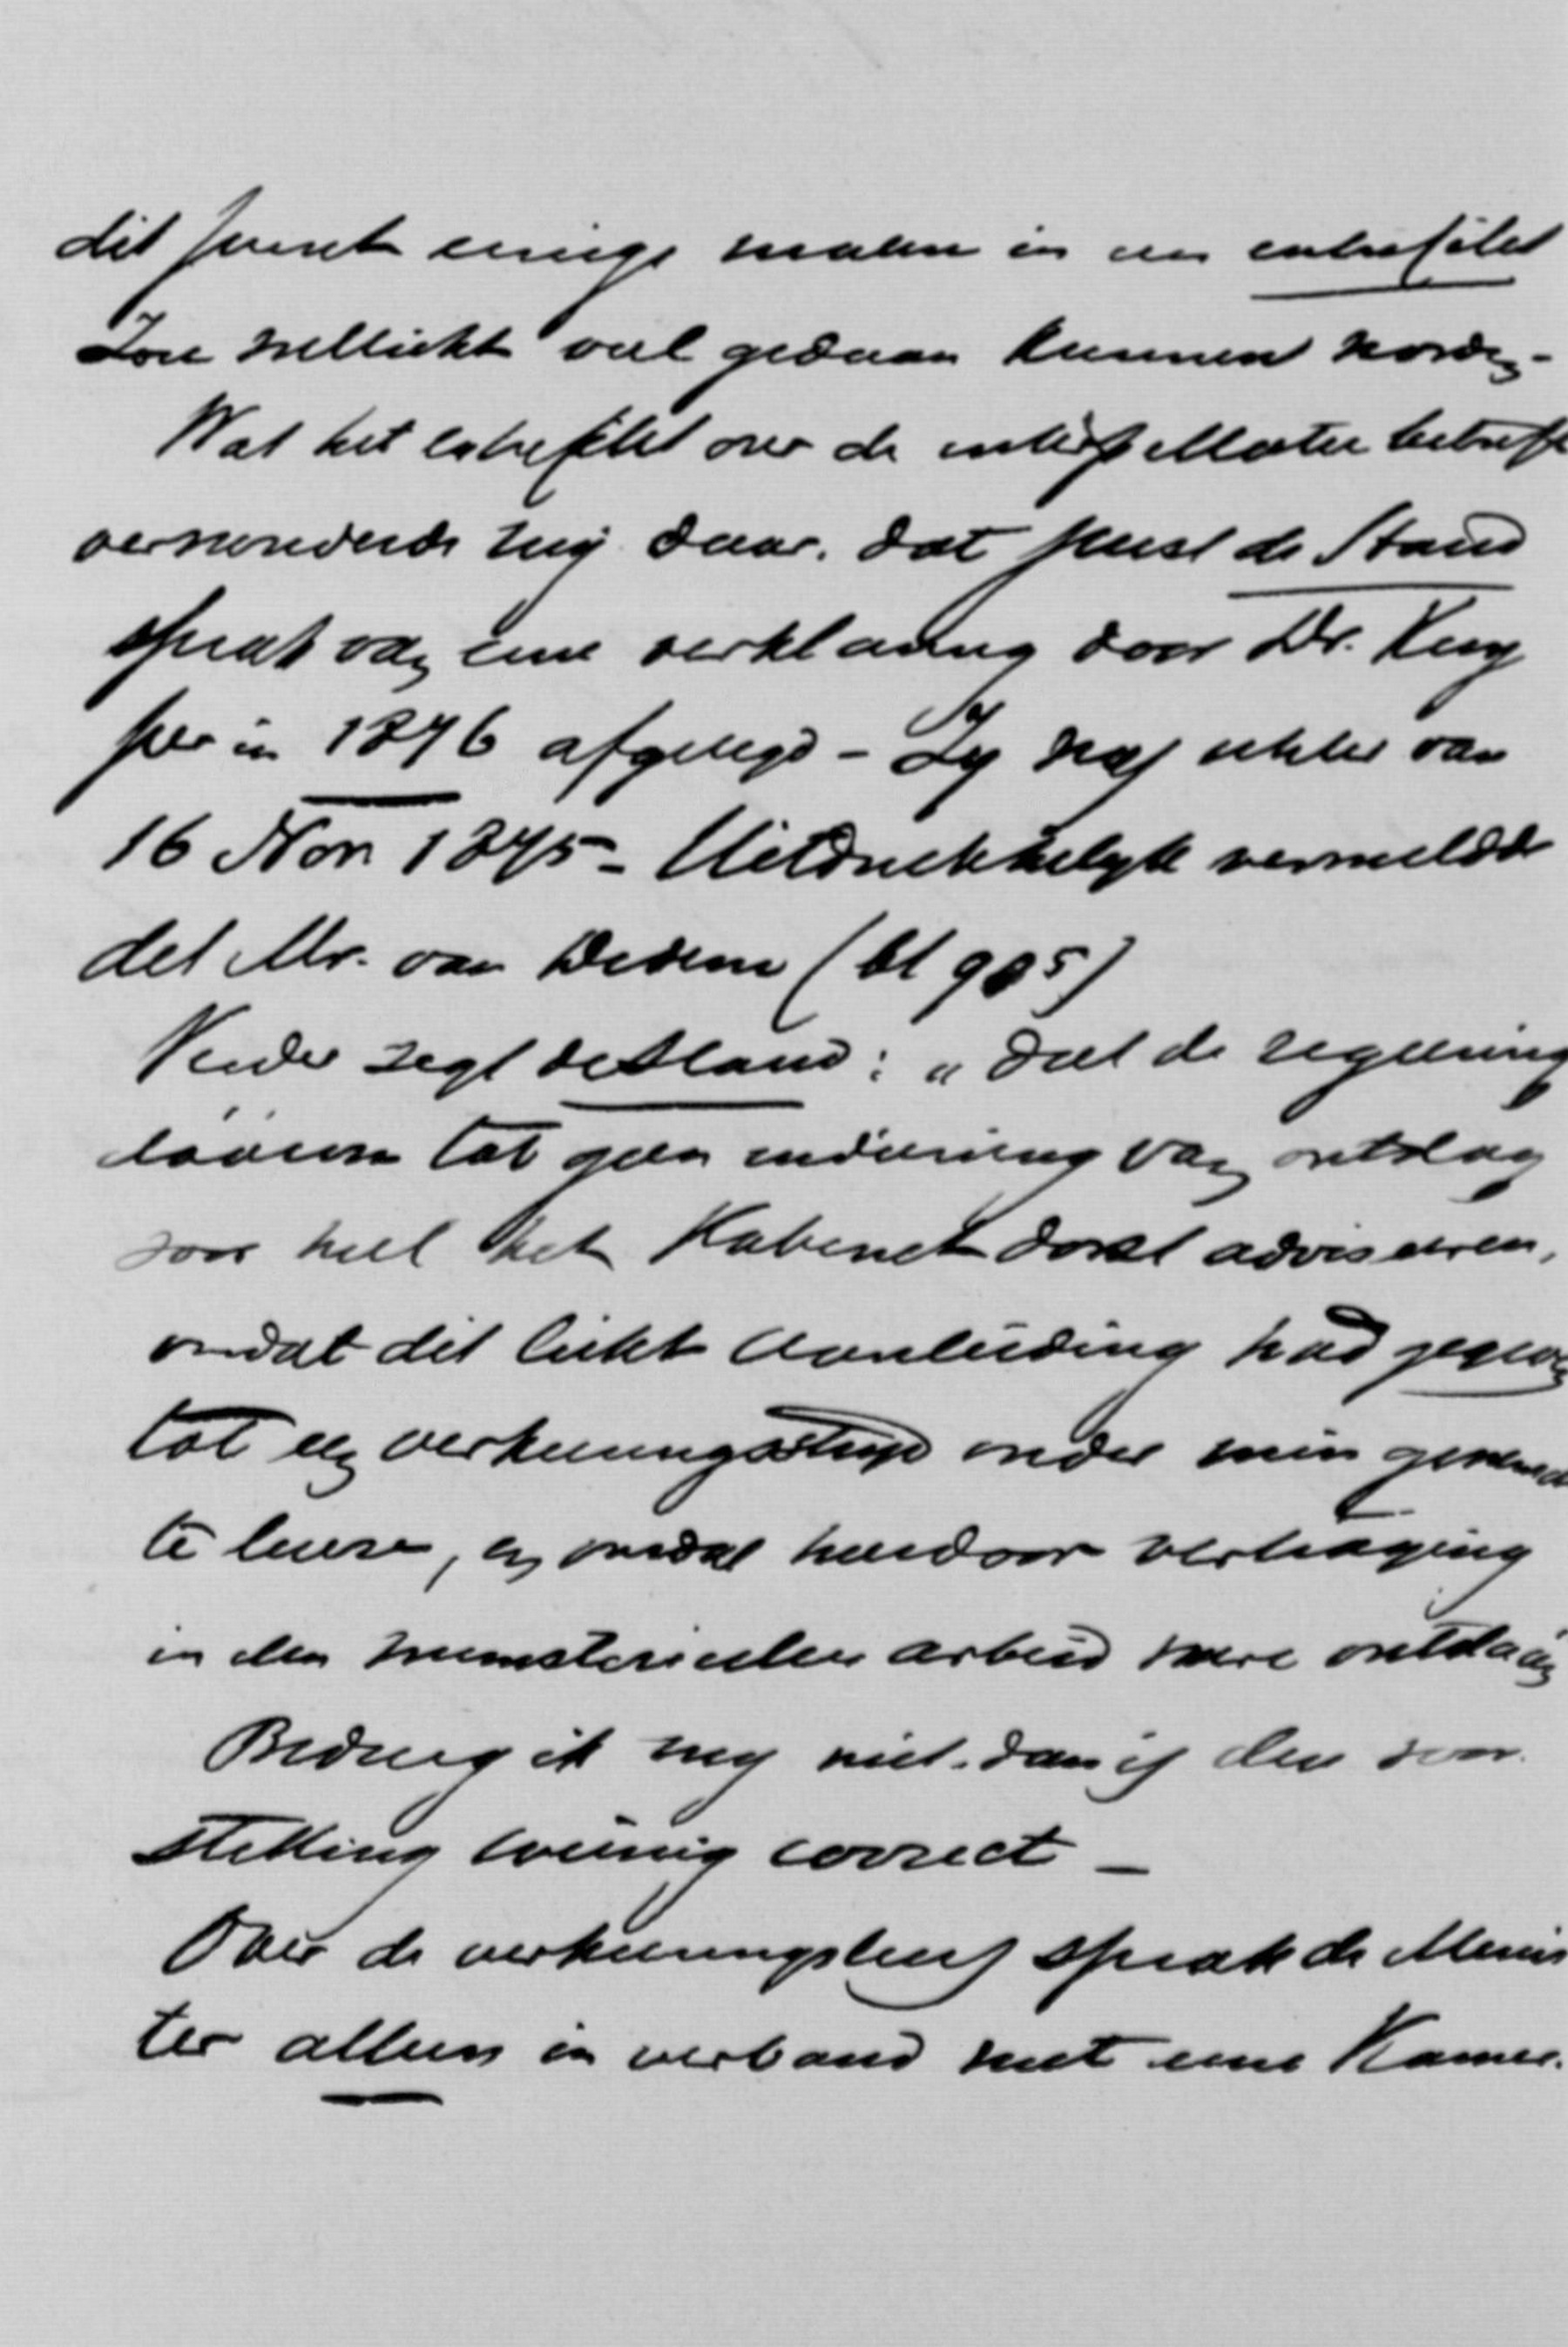 dit punt eenige malen in een entrefilet
Zou wellicht veel gedaan kunnen worden -
Wat het entrefilet over de interpellatie betreft
verwonderde mij daar. dat juist de Stand
sprak van eene verklaring door Dr. Kuy
per in 1876 afgelegd - Zij was echter van
16 Nov 1875 - Uitdrukkelijk vermeldde
dit Mr. van Dedem (bl 905)
Verder zegt de Stand: „dat de regeering
daarom tot geen indiening van ontslag
voor heel het Kabinet dorst adviseeren,
omdat dit licht aanleiding had gegeven
tot een verkiezingsstrijd onder min
te leuze, en omdat hierdoor vertraging
in den ministerieelen arbeid ware ontstaan
Bedrieg ik mij niet. dan is deze voor
stelling weinig correct -
Over de verkiezingsleus sprak de Minis
ter alleen in verband met eene Kamer.